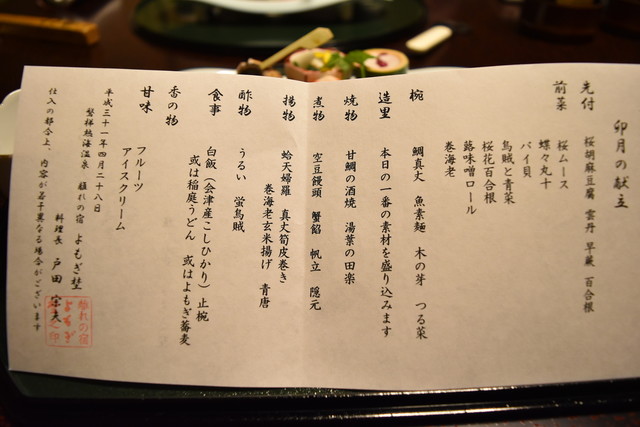 卯月の献立
先付　桜胡麻豆腐　雲丹　早蕨　百合根
前菜　桜ムース
蝶々丸十
バイ貝
烏賊と青菜
桜花百合根
蕗味噌ロール
巻海老
椀　鯛真丈　魚素麺　木の芽　つる菜
造里　本日の一番の素材を盛り込みます
焼物　甘鯛の酒焼　湯葉の田楽
煮物　空豆饅頭　蟹餡　帆立　隠元
揚物　蛤天婦羅　真丈筍皮巻き
巻海老玄米揚げ　青唐
酢物　うるい　蛍烏賊
食事　白飯（会津産こしひかり）止椀
或は稲庭うどん　或はよもぎ蕎麦
香の物
甘味　フルーツ
アイスクリーム
平成三十一年四月二十八日
磐梯熱海温泉　離れの宿　よもぎ埜
料理長　戸田　宗夫
仕入の都合上、内容が若干異なる場合がございます